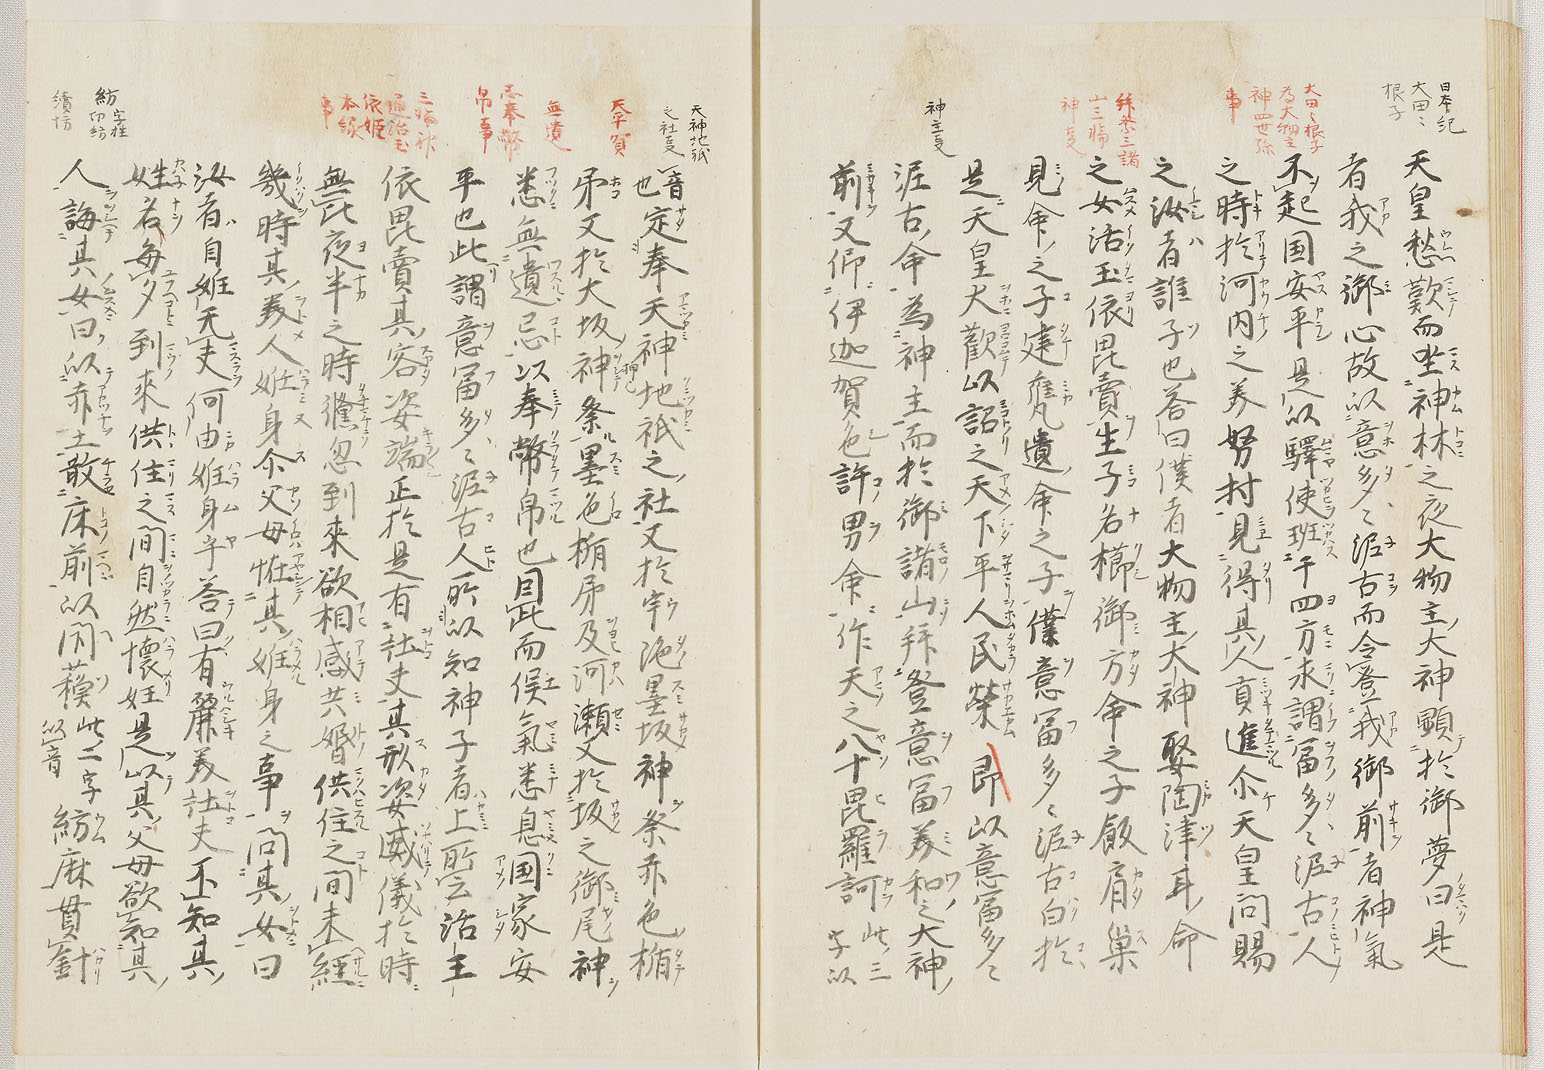 日本紀
大田々
根子
大田々根子
為大物主
神四世孫
事
神主事
天皇愁歎而坐神牀之夜大物主大神顕於御夢曰是
者我之御心故以意多々泥古而令祭我御前者神氣
不起国安平是以驛使班于四方求謂意富多々泥古人
之時於河内之美努村見得其人貢進尒天皇問賜
之汝者誰子也答曰僕者大物主大神娶陶津耳命
之女活玉依毘賣生子名櫛御方命之子飯肩巣
見命之子建甕遺命之子僕意富多々泥古白於
是天皇大歡以詔之天下平人民榮即以意富多々
泥古命為神主而於御諸山拜祭意富美和之大神
前又仰伊迦賀色許男命作天之八十毘羅訶此三
字以
天神地祇
之社事
天平賀
無遺
忌奉幣
帛事
依姫
本縁
事
紡
音也定奉天神地祇之社又於宇陀墨坂神祭赤色楯
矛又於大坂神祭墨色楯矛及河瀬又於坂之御尾神
悉無遺忘以奉幣帛也因此而伇氣悉息国家安
平也此謂意冨多々泥古人所以知神子者上所云活玉
依毘賣其容姿端正於是有壮夫其形姿威儀於時
無比夜半之時儵忽到來欲相感共婚供住之間未經
幾時其美人妊身尒父母恠其妊身之事問其女曰
汝者自妊无夫何由妊身乎答曰有麗美壮夫不知其
姓名毎夕到來供住之間自然懐妊是以其父母欲知其
人誨其女曰以赤土散床前以閇蘓此二字以音紡麻貫針